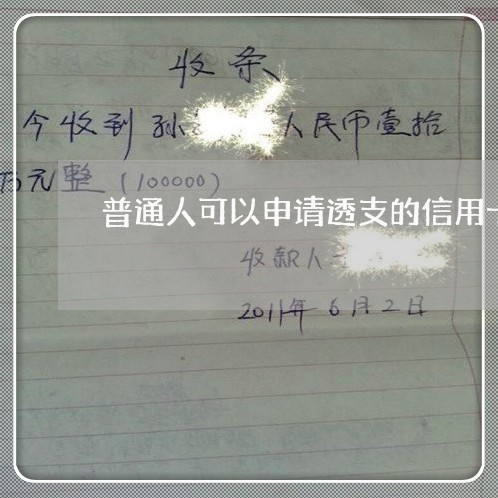 收条
今收到孙 人民币壹拾
万元整(100000)
普通人可以申请透支的信用卡
收款人
2011年6月2日